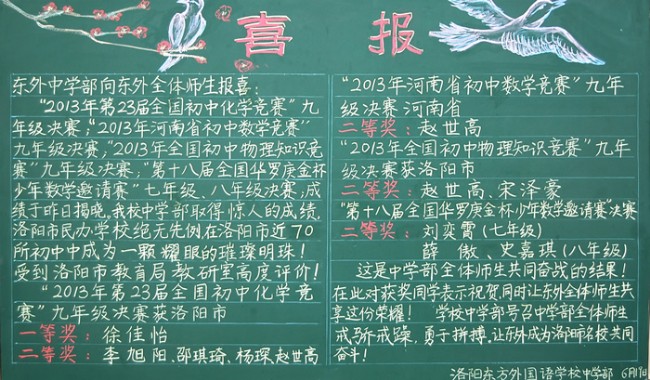 喜报
东外中学部向东外全体师生报喜:
"2013年第23届全国初中化学竞赛"九
年级决赛;"2013年河南省初中数学竞赛"
九年级决赛;"2013年全国初中物理知识竞
赛"九年级决赛;"第十八届全国华罗庚金杯
少年数学邀请赛"七年级、八年级决赛;成
绩于昨日揭晓,我校中学部取得惊人的成绩,
洛阳市民办学校绝无先例在洛阳市近70
所初中中成为一颗耀眼的璀璨明珠!
受到洛阳市教育局教研室高度评价!
"2013年第23届全国初中化学竞
赛"九年级决赛获洛阳市
一等奖:徐佳怡
二等奖:李旭阳、邵琪琦、杨琛、赵世高
"2013年河南省初中数学竞赛"九年
级决赛河南省
二等奖:赵世高
"2013年全国初中物理知识竞赛"九年
级决赛获洛阳市
二等奖:赵世高、宋泽豪
"第十八届全国华罗庚金杯少年数学邀请赛"决赛
二等奖:刘奕霄(七年级)
薛傲、史嘉琪(八年级)
这是中学部全体师生共同奋战的结果!
在此对获奖同学表示祝贺,同时让东外全体师生共
享这份荣耀! 学校中学部号召中学部全体师生
戒骄戒躁,勇于拼搏,让东外成为洛阳市名校共同
奋斗!
洛阳东方外国语学校中学部 6月1日